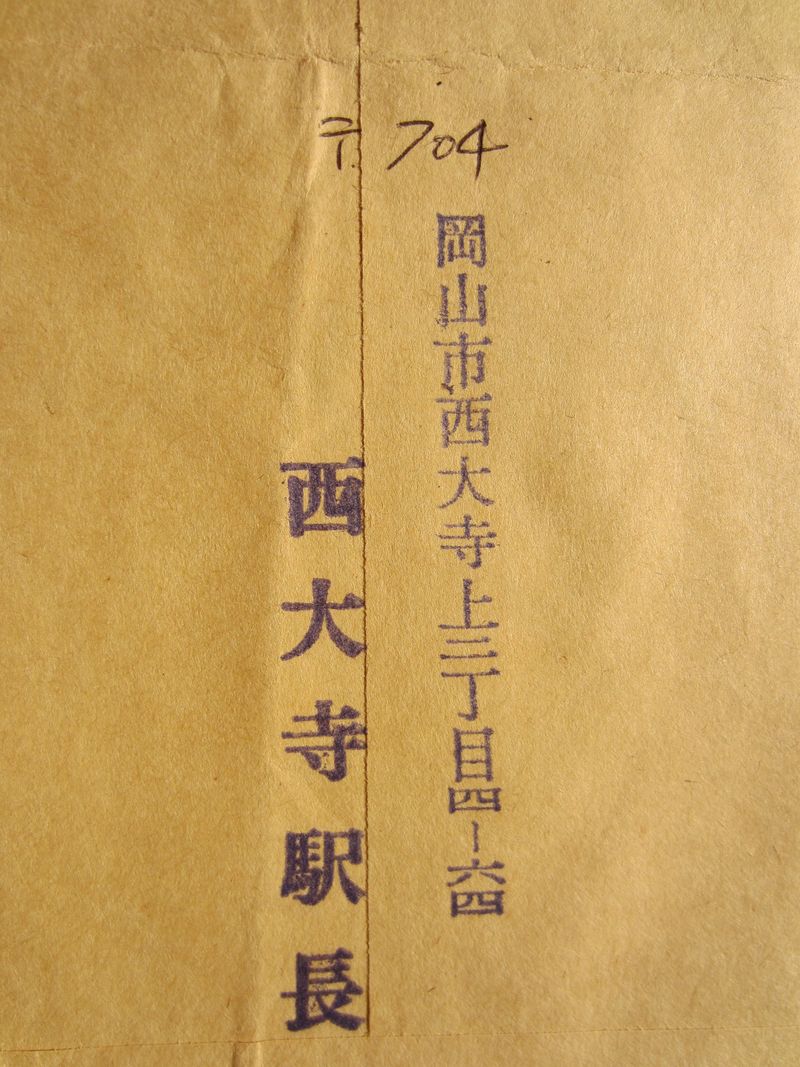 〒 704
岡山市西大寺上三丁目四-六四
西大寺駅長